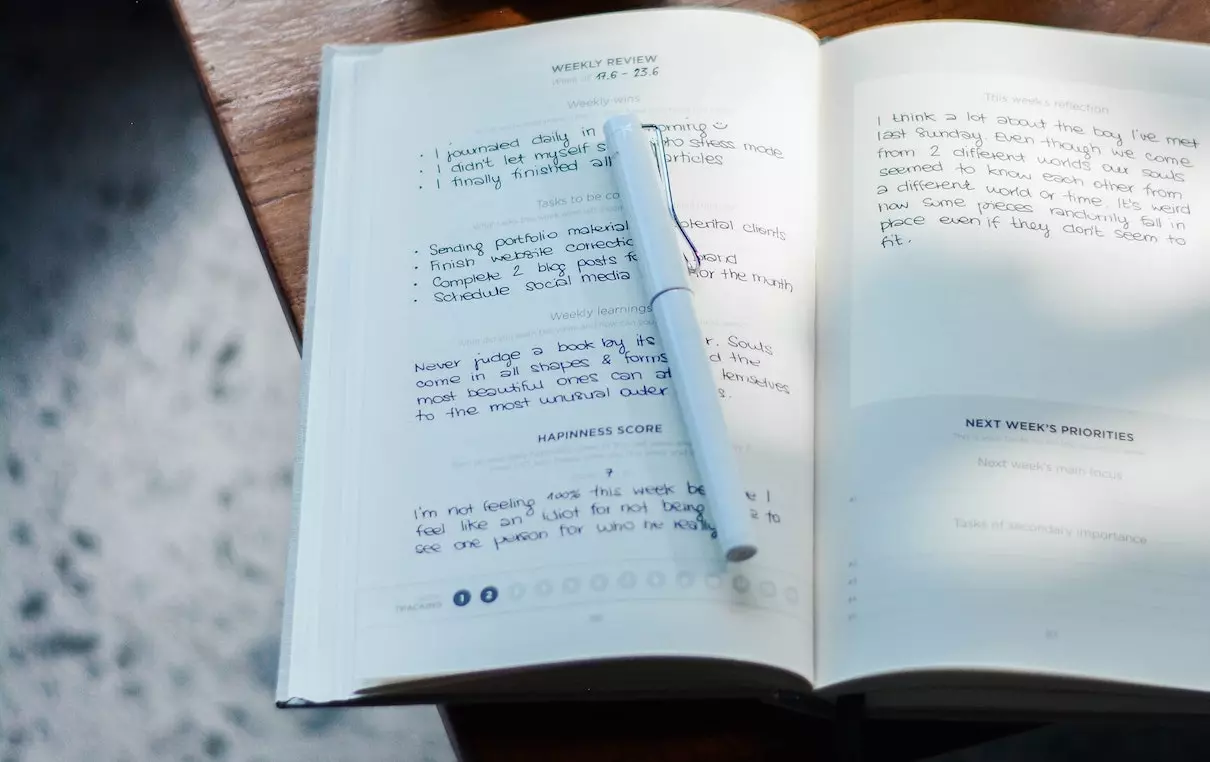 WEEKLY REVIEW
17.6 - 23.6
Weekly wins
• I journaled daily in
• I didn't let myself stress mode
• I finally finished all articles
Tasks to be
• Sending portfolio material clients
• Finish website
• Complete 2 blog posts
• Schedule social media for the month
Weekly learnings
Never judge a book by its Souls
come in all shapes & forms the
most beautiful ones can
to the most unusual outer
HAPINNESS SCORE
7
I'm not feeling 100% this week I
feel like an idiot for not being to
see one person for who he really
TRACKING 1 2
This week's reflection
I think a lot about the boy I've met
last Sunday. Even though we come
from 2 different worlds our souls
seemed to know each other from
a different world or time. It's weird
how some pieces randumly fall in
place even if they don't seem to
fit.
NEXT WEEK'S PRIORITIES
Next week's main focus
Tasks of secondary importance